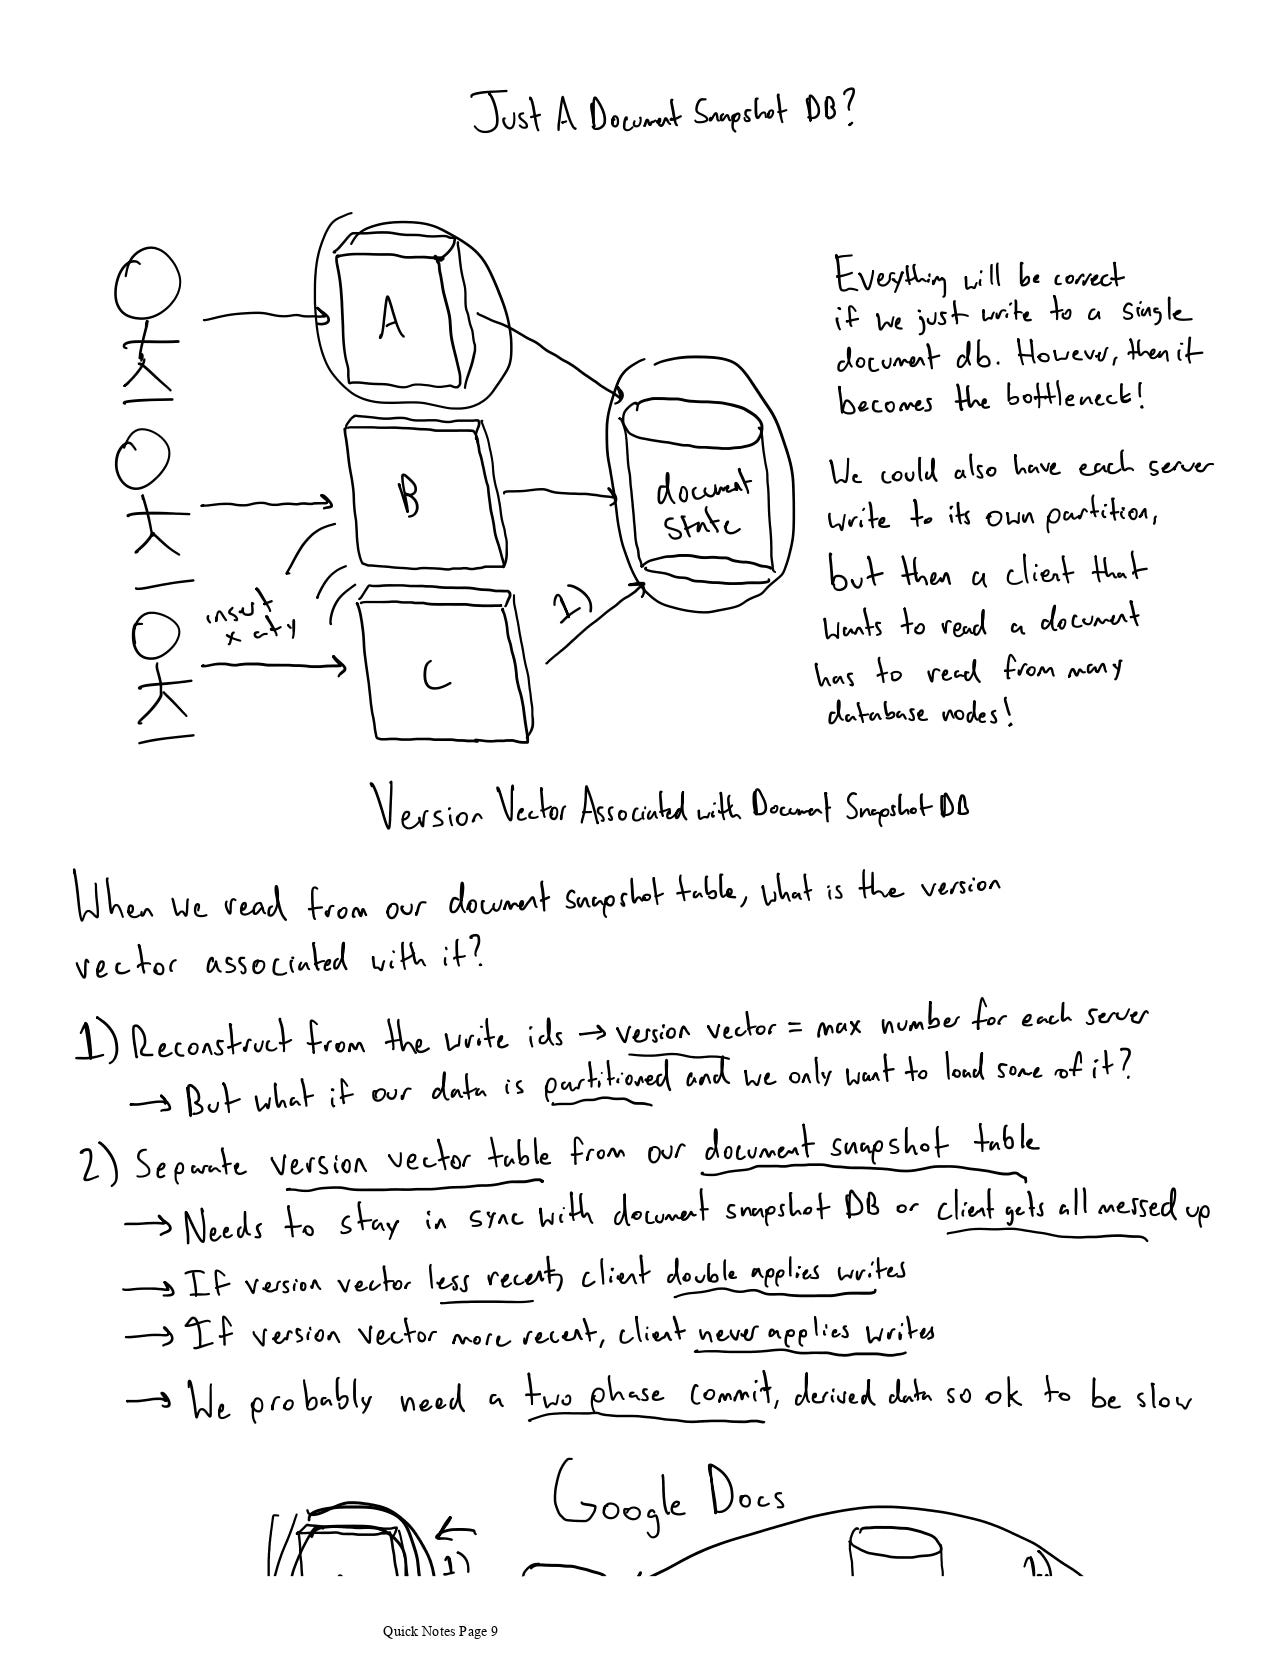 Just A Document Snapshot DB?
A
Everything will be correct
if we just write to a single
document db. However, then it
becomes the bottleneck!
B
document
state
We could also have each server
write to its own partition,
but then a client that
wants to read a document
has to read from many
database nodes!
insert
x at y
1)
C
Version Vector Associated with Document Snapshot DB
When we read from our document snapshot table, what is the version
vector associated with it?
1) Reconstruct from the write ids → version vector = max number for each server
→ But what if our data is partitioned and we only want to load some of it?
2) Separate version vector table from our document snapshot table
→ Needs to stay in sync with document snapshot DB or client gets all messed up
→ If version vector less recent, client double applies writes
→ If version vector more recent, client never applies writes
→ We probably need a two phase commit, derived data so ok to be slow
Google Docs
1)
Quick Notes Page 9